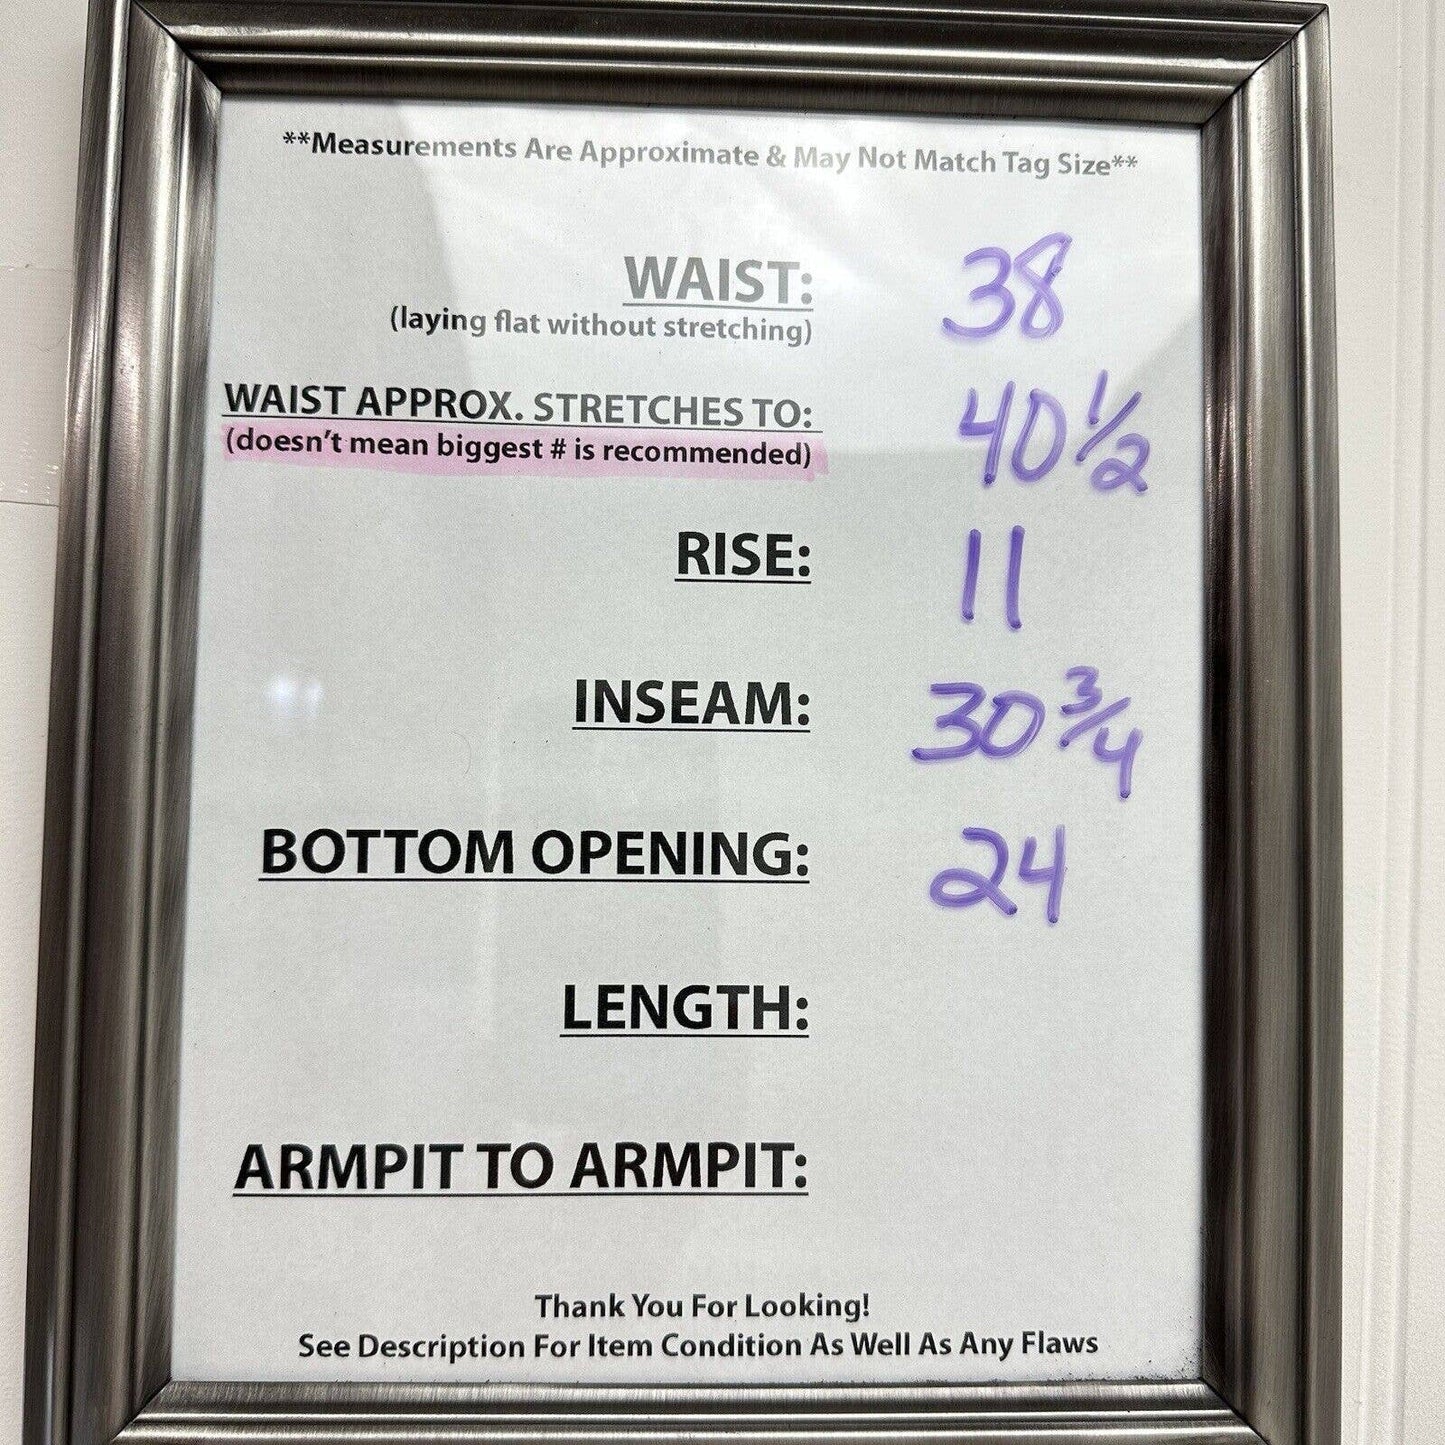 **Measurements Are Approximate & May Not Match Tag Size**
WAIST: 38
(laying flat without stretching)
WAIST APPROX. STRETCHES TO: 40 1/2
(doesn't mean biggest # is recommended)
RISE: 11
INSEAM: 30 3/4
BOTTOM OPENING: 24
LENGTH:
ARMPIT TO ARMPIT:
Thank You For Looking!
See Description For Item Condition As Well As Any Flaws